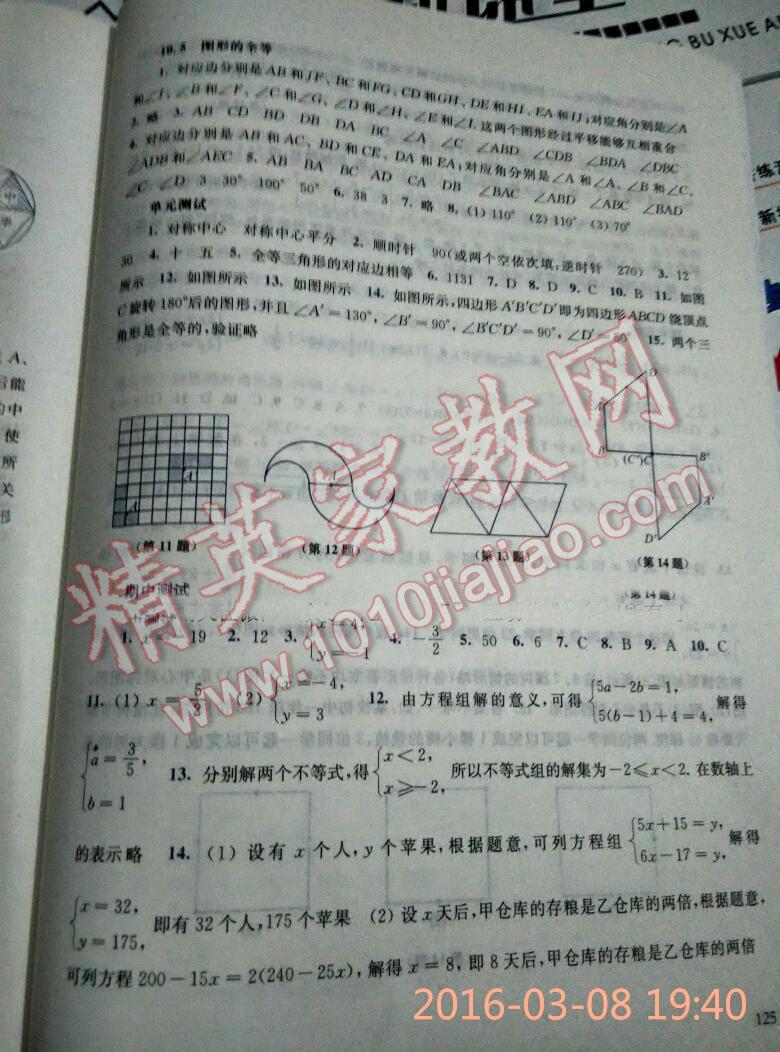 BU XUE A
10.5 图形的全等
1. 对应边分别是 AB 和 JF、BC 和 FG、CD 和 GH、DE 和 HI、EA 和 IJ;对应角分别是∠A
和∠J、∠B 和∠F、∠C 和∠G、∠D 和∠H、∠E 和∠I. 这两个图形经过平移能够互相重合
2. 略 3. AB CD BD DB DA BC ∠A ∠C ∠ABD ∠CDB ∠BDA ∠DBC
4. 对应边分别是 AB 和 AC、BD 和 CE、DA 和 EA;对应角分别是∠A 和∠A、∠B 和∠C、
∠ADB 和∠AEC 5. AB BA BC AD CA DB ∠BAC ∠ABD ∠ABC ∠BAD
∠C ∠D 3 30° 100° 50° 6. 38 3 7. 略 8. (1) 110° (2) 110° (3) 70°
单元测试
1. 对称中心 对称中心平分 2. 顺时针 90(或两个空依次填:逆时针 270) 3. 12
30 4. 十 五 5. 全等三角形的对应边相等 6. 1131 7. D 8. D 9. C 10. B 11. 如图
所示 12. 如图所示 13. 如图所示 14. 如图所示,四边形 A′B′C′D′即为四边形 ABCD 绕顶点
C 旋转 180°后的图形,并且∠A′=130°,∠B′=90°,∠B′C′D′=90°,∠D′=50° 15. 两个三
角形是全等的,验证略
A′
A
A
D
A
B
(C′)C
B′
A′
D′
(第 11 题)
(第 12 题)
(第 13 题)
(第 14 题)
(第 14 题)
期中测试
1. x=-19 2. 12 3. {x=4, y=-1 4. -3/2 5. 50 6. 6 7. C 8. B 9. A 10. C
11. (1) x=-5/3 (2) {x=-4, y=3 12. 由方程组解的意义,可得{5a-2b=1, 5(b-1)+4=4, 解得
{a=3/5, b=1 13. 分别解两个不等式,得{x<2, x≥-2, 所以不等式组的解集为-2≤x<2. 在数轴上
的表示略 14. (1) 设有 x 个人,y 个苹果,根据题意,可列方程组{5x+15=y, 6x-17=y, 解得
{x=32, y=175, 即有 32 个人,175 个苹果 (2) 设 x 天后,甲仓库的存粮是乙仓库的两倍,根据题意,
可列方程 200-15x=2(240-25x),解得 x=8,即 8 天后,甲仓库的存粮是乙仓库的两倍
125
精英家教网
www.1010jiajiao.com
2016-03-08 19:40